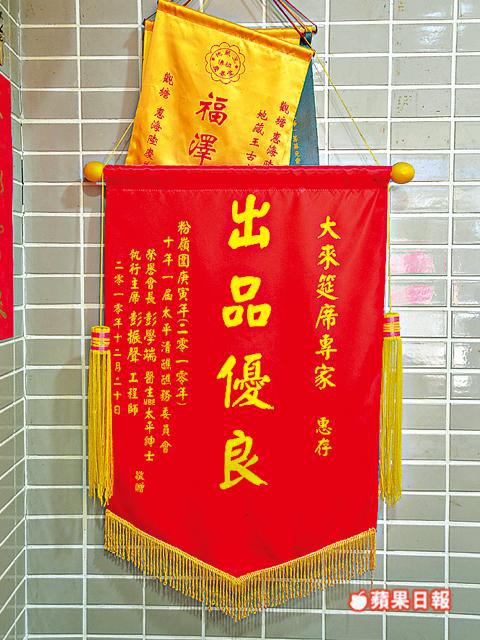 福澤
觀塘 慈海陸
地藏王古
觀塘 慈海陸
大來筵席專家 惠存
出品優良
粉嶺圍庚寅年(二零一零年)
十年一屆太平清醮醮務委員會
榮譽會長 彭學端 醫生MBE太平紳士
執行主席 彭振聲 工程師
二零一零年十二月二十日
敬贈
蘋果日報